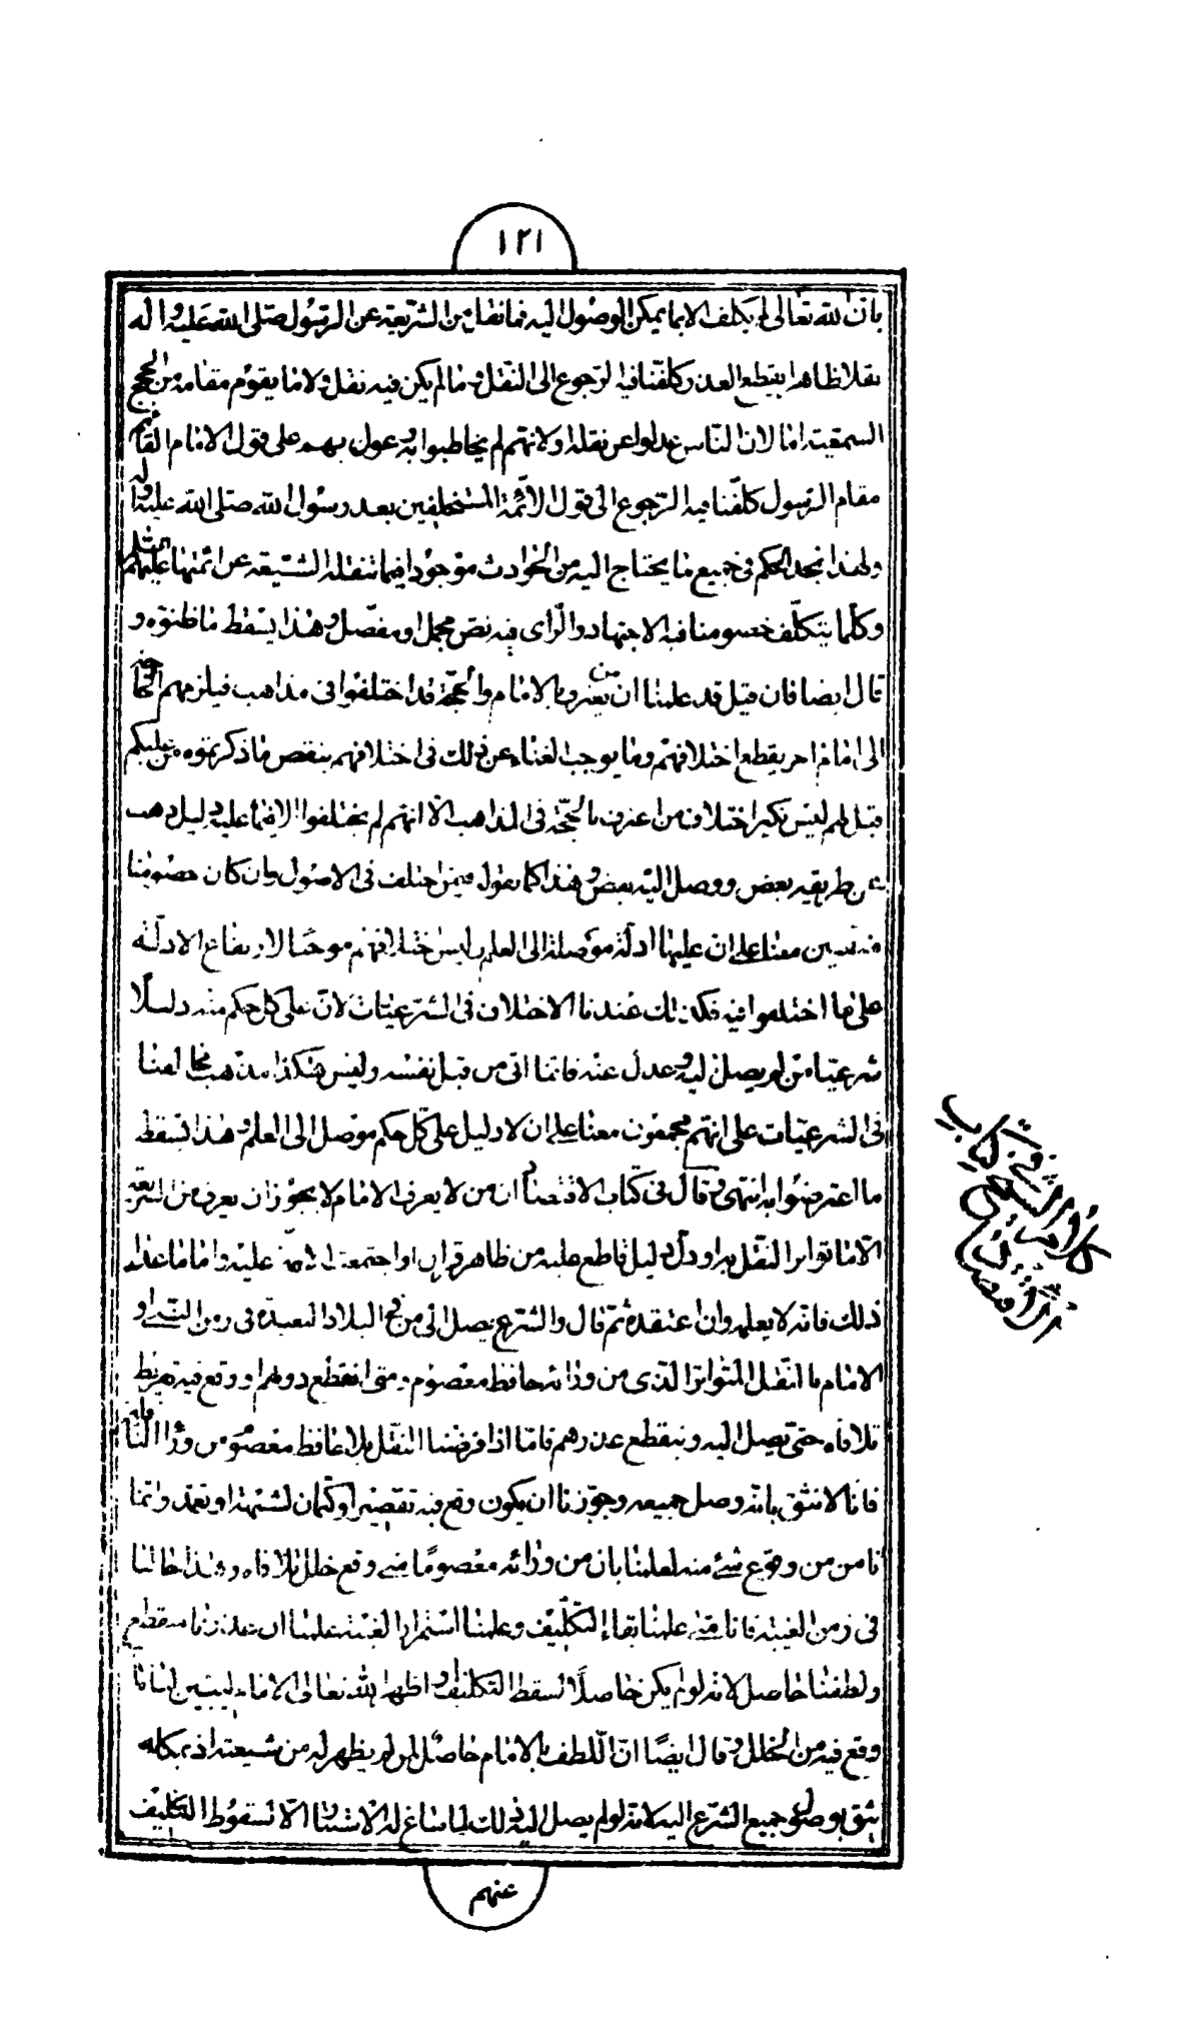 ١٢١
بان الله تعالى لم يكلف الا بما يمكن الوصول اليه فما نقل من الشريعة عن الرسول صلى الله عليه واله
نقلا ظاهرا يقطع العذر كلفنا فيه الرجوع الى النقل وما لم يكن فيه نقل ولا ما يقوم مقامه من الحجج
السمعية اما لان الناس عدلوا عن نقله او لانهم لم يخاطبوا به وعول بهم على قول الامام القائم
مقام الرسول كلفنا فيه الرجوع الى قول الائمة المستخلفين بعد رسول الله صلى الله عليه واله
ولهذا نجد الحكم في جميع ما يحتاج اليه من الحوادث موجودا فيما تنقله الشيعة عن ائمتها عليهم
وكلما يتكلف خصومنا فيه الاجتهاد والراى فيه نص مجمل او مفصل وهذا يسقط ما ظنوه و
قال ايضا فان قيل قد علمنا ان من يعترف بالامام والحجة قد اختلفوا في مذاهب فيلزمهم الحاجة
الى امام اخر يقطع اختلافهم وما يوجب الغناء عن ذلك في اختلافهم ينقص ما ذكرتموه من عليكم
قيل لهم ليس نكير اختلاف من اعترف بالحجة في المذاهب الا انهم لم يختلفوا الا فيما عليه دليل ذهب
عن طريقه بعض ووصل اليه بعض وهذا كما نقول فيمن اختلف في الاصول وان كان خصومنا
معنا على ان عليها ادلة موصلة الى العلم وليس اختلافهم موجبا لارتفاع الادلة
على ما اختلفوا فيه فكذلك عندنا الاختلاف في الشرعيات لان على كل حكم منه دليلا
شرعيا من لم يصل اليه وعدل عنه فانما اتى من قبل نفسه وليس هكذا مذهب مخالفنا
في الشرعيات على انهم مجمعون معنا على ان لا دليل على كل حكم موصل الى العلم وهذا يسقط
ما اعترضوا به انتهى وقال في كتاب الاقتصاد ان من لا يعرف الامام لا يجوز ان يعرف من الشريعة
الا ما تواتر النقل به او دل دليل قاطع عليه من ظاهر قران او اجتمعت الامة عليه واما ما عدا
ذلك فانه لا يعلمه وان اعتقده ثم قال والشرع يصل الى من في البلاد البعيدة في زمن النبي او
الامام بالنقل المتواتر الذى من ورائه حافظ معصوم ومتى انقطع دونهم او وقع فيه تفريط
تلافاه حتى يصل اليه وينقطع عذرهم فاما اذا فرضنا النقل بلا حافظ معصوم من وراء الناقلين
فانا لا نثق بانه وصل جميعه وجوزنا ان يكون وقع فيه تقصير او كتمان لشبهة او تعمد وانما
نامن من وقوع شئ منه لعلمنا بان من ورائه معصوما متى وقع خلل تلافاه وهذا حالنا
في زمن الغيبة فانا متى علمنا بقاء التكليف وعلمنا استمرار الغيبة علمنا ان عذرنا منقطع
ولطفنا حاصل لانه لو لم يكن حاصلا لسقط التكليف او اظهر الله تعالى الامام ليبين لنا ما
وقع فيه من الخلل وقال ايضا ان اللطف بالامام حاصل لمن لم يظهر له من شيعته اذ بمكانه
يثق بوصول جميع الشرع اليه لانه لو لم يصل اليه ذلك لما ساغ له الاستتار الا لسقوط التكليف
عنهم
كلام الشيخ في كتاب
الاقتصاد